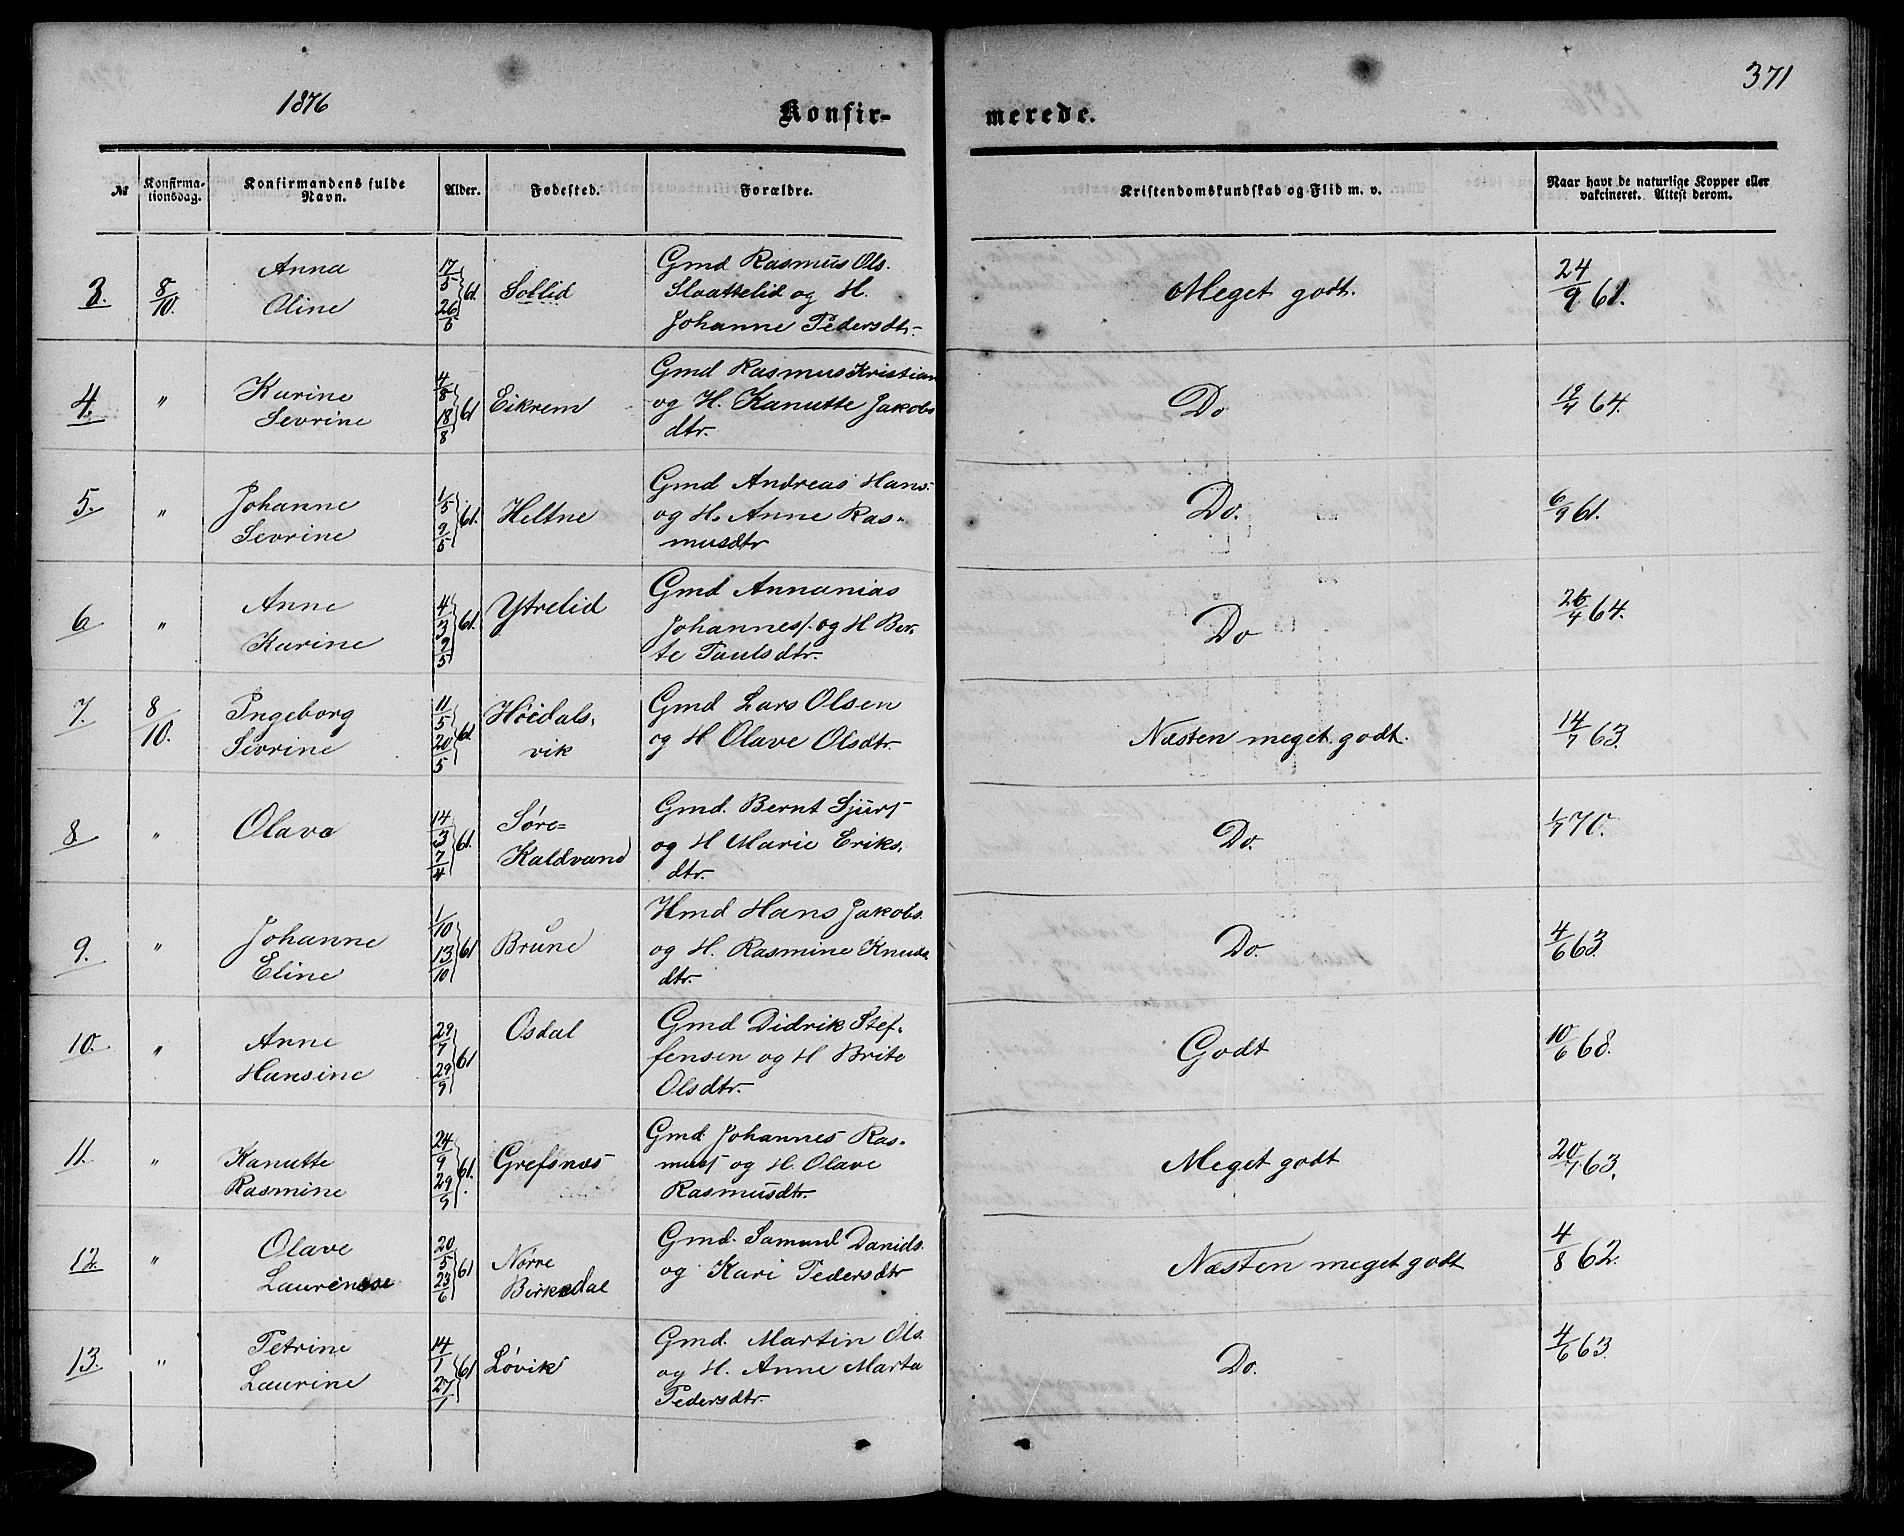 1876
Konfir-
merede.
371
№
Konfirma-
tionsdag.
Konfirmandens fulde
Navn.
Alder.
Fødested.
Forældre.
Kristendomskundskab og Flid m. v.
Naar havt de naturlige Kopper eller
vakcineret. Attest derom.
3. 8/10. Anna Oline 17/5 26/5 61. Sollid
Gmd Rasmus Ols.
Slaattelid og H.
Johanne Pedersdtr.
Meget godt. 24/9 61.
4. " Karine Sevrine 4/8 18/8 61 Eikrem
Gmd Rasmus Kristian
og H. Kanutte Jakobs
dtr.
Do 19/7 64.
5. " Johanne Sevrine 1/5 9/5 61. Heltne
Gmd Andreas Hans-
og H. Anne Ras-
musdtr
Do. 6/9 61.
6 " Anne Karine 4/3 9/5 61. Ytrelid
Gmd Annanias
Johannesf. og H Ber-
te Paulsdtr.
Do 26/4 64.
7. 8/10. Ingeborg Sevrine 11/5 20/5 61 Höidals-
vik
Gmd Lars Olsen
og H Olave Olsdtr.
Næsten meget godt. 14/7 63.
8 " Olava 14/3 7/4 61. Søre=
Kaldvand
Gmd. Bernt Sjurs
og H Marie Eriks-
dtr.
Do. 1/7 70.
9. " Johanne Eline 1/10 13/10 61 Brune
Hmd Hans Jakobs.
og H. Rasmine Knuds
dtr.
Do. 4/6 63.
10. " Anne Hansine 29/7 29/9 61 Osdal
Gmd Didrik Stef-
fensen og H Brite
Olsdtr.
Godt 10/6 68.
11. " Kanutte Rasmine 24/9 29/9 61. Grefsnæs
Gmd Johannes Ras-
musf og H. Olave
Rasmusdtr.
Meget godt 20/7 63.
12. " Olave Laurine 20/5 23/6 61 Nørre
Birkedal
Gmd. Samuel Daniels.
og Kari Pedersdtr
Næsten meget godt 4/8 62.
13. " Petrine Laurine 14/1 27/1 61 Løvik
Gmd. Martin Ols.
og H. Anne Marta
Pedersdtr.
Do. 4/6 63.